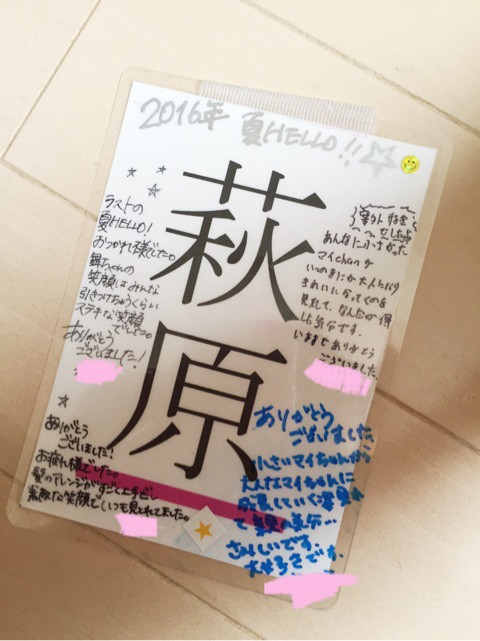 2016年 夏HELLO!!
萩
原
ラストの
夏HELLO!
おつかれ様でした。
舞ちゃんの
笑顔はみんな
引きつけちゃうくらい
ステキな笑顔
でした。
ありがとう
ございました!
あんなに小さかった
マイchanが
いつのまにか大人になり
きれいになってくのを
見れて、なんだか得
した気分です。
いままでありがとう
ございました
ありがとう
ございました!
お疲れ様でした。
髪のアレンジがすごく上手だし
素敵な笑顔でいつも見とれてました。
ありがとう
ございました
小さいマイちゃんから
大人なマイちゃんに
成長していく姿
て
さみしいです。
大好きです。